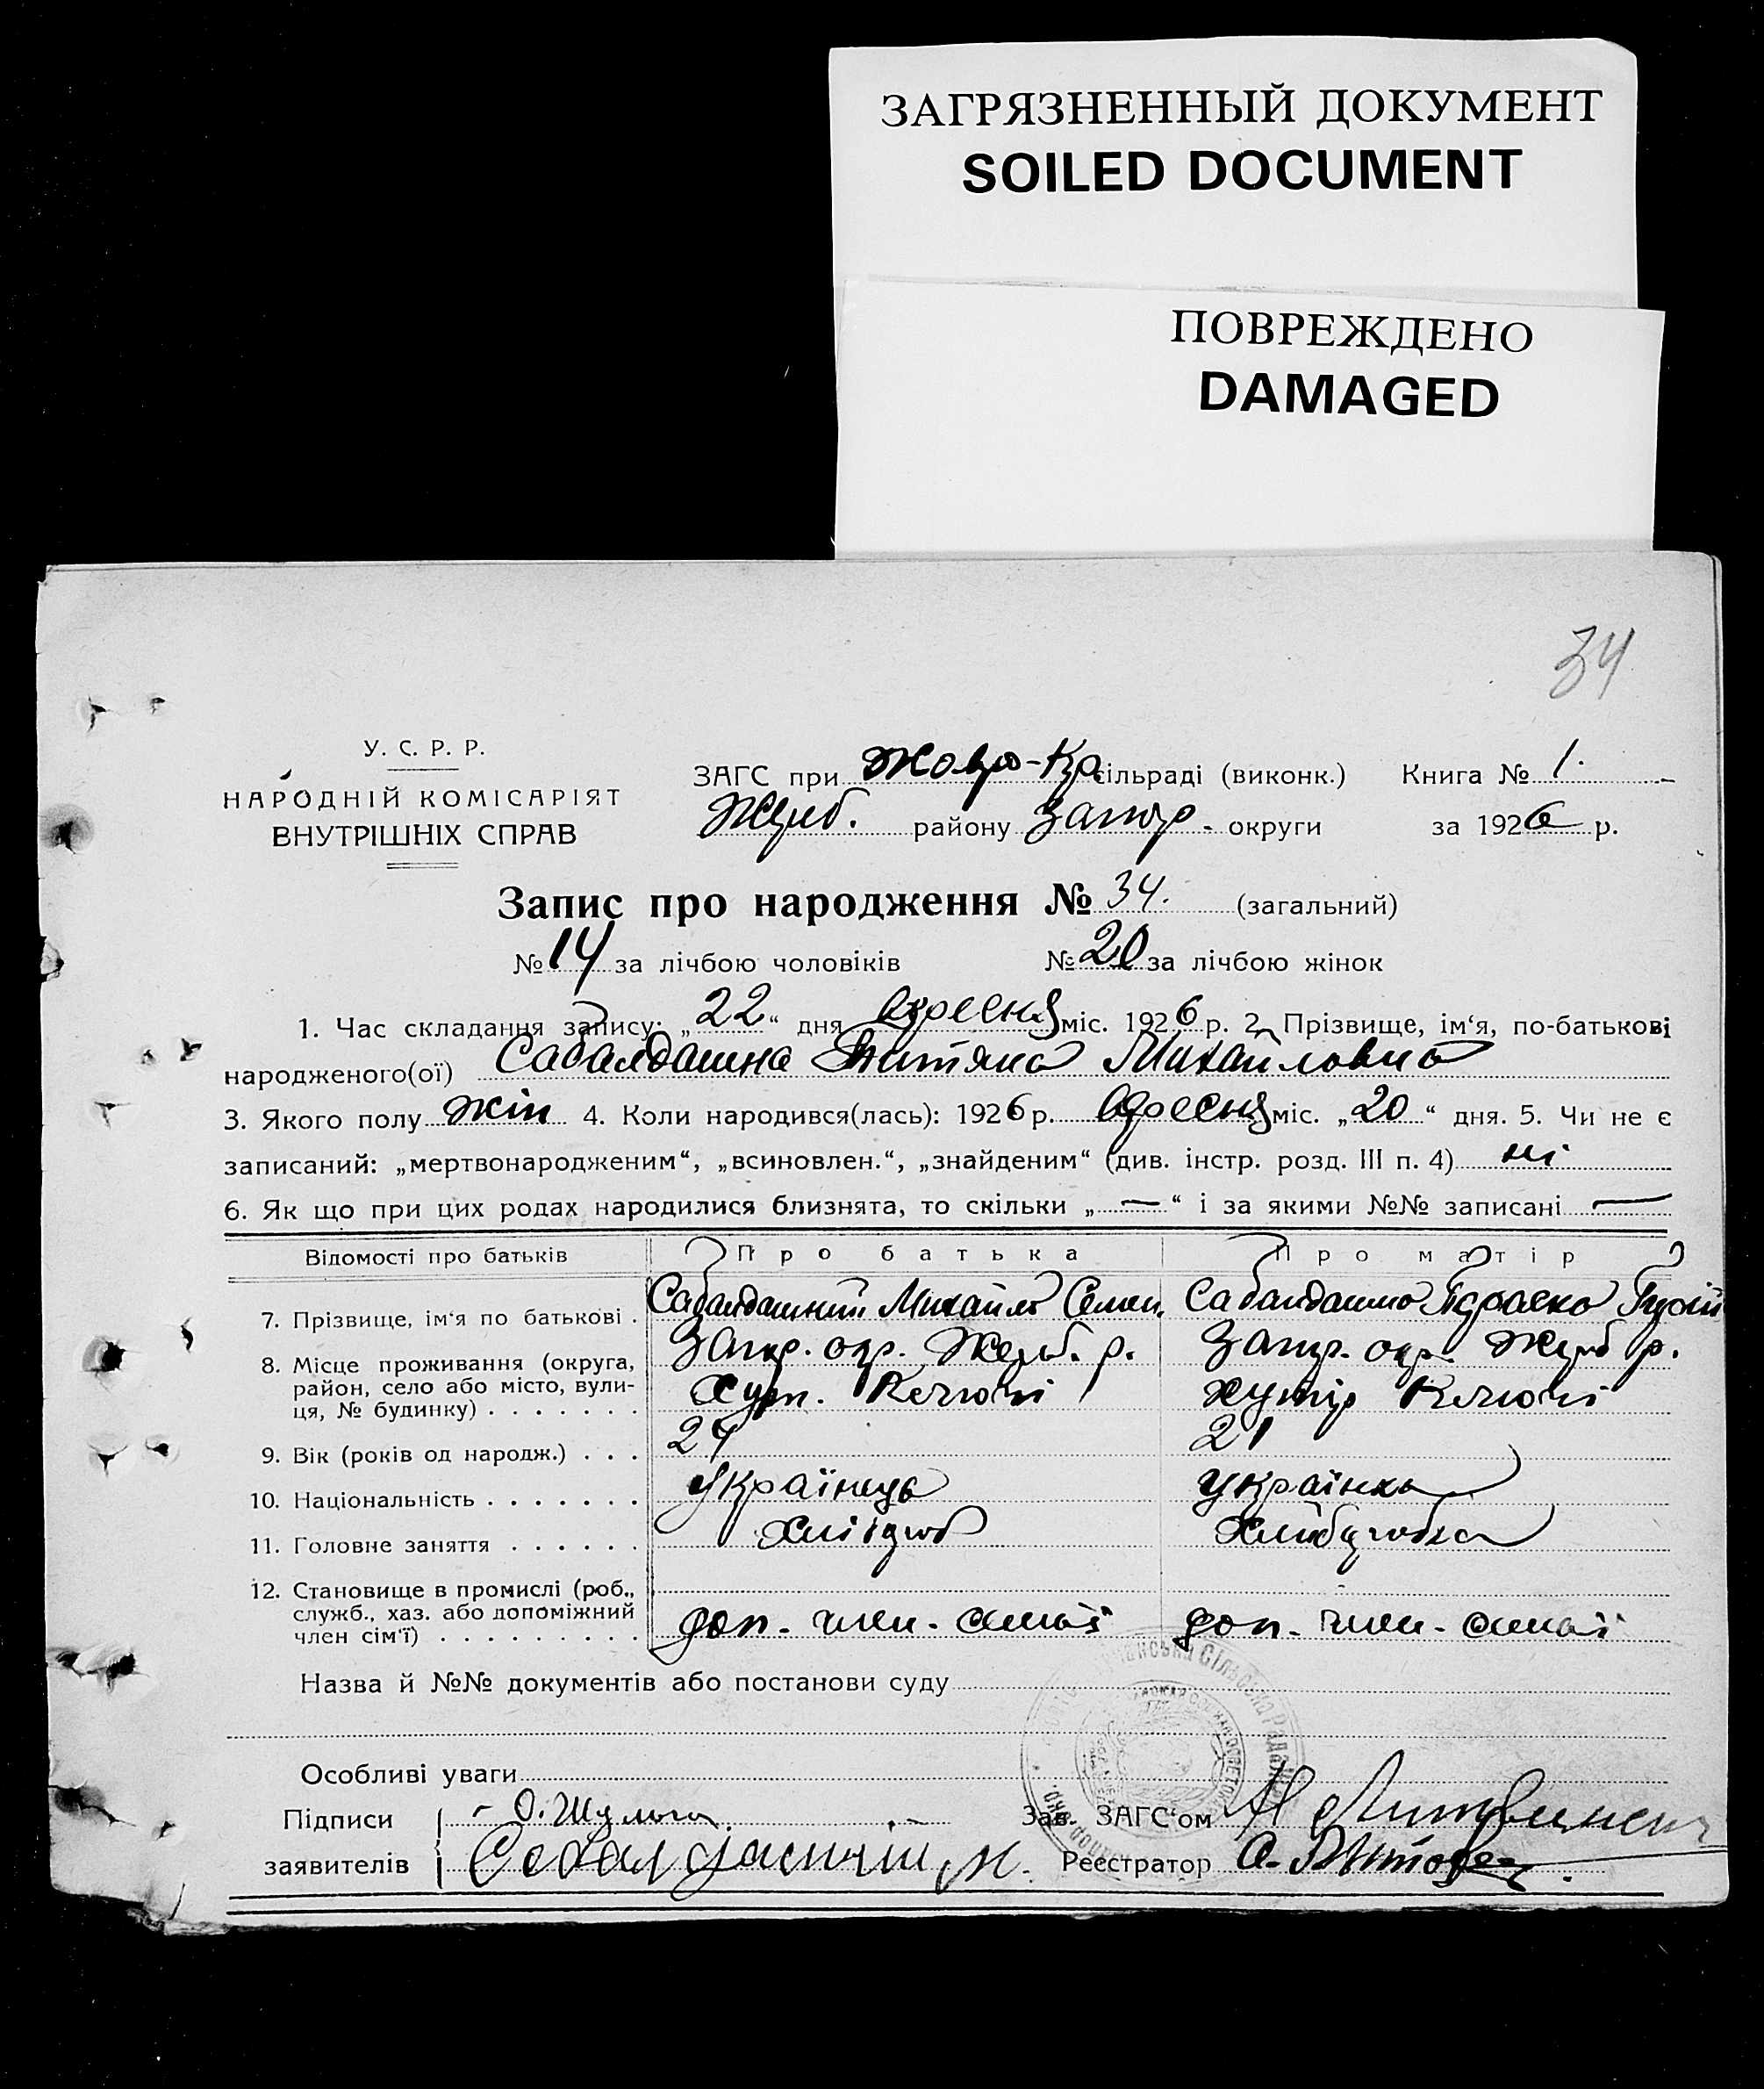 ЗАГРЯЗНЕННЫЙ ДОКУМЕНТ
SOILED DOCUMENT
ПОВРЕЖДЕНО
DAMAGED
34
У. С. Р. Р.
НАРОДНІЙ КОМІСАРІЯТ
ВНУТРІШНІХ СПРАВ
ЗАГС при Жовто-Кр сільраді (виконк.) Книга № 1.
Жереб. району Запор. округи за 1926 р.
Запис про народження № 34. (загальний)
№ 14 за лічбою чоловіків № 20 за лічбою жінок
1. Час складання запису: „22“ дня вересня міс. 1926 р. 2. Прізвище, ім‘я, по-батькові
народженого(ої) Сабалдашна Титяна Михайловна
3. Якого полу жін 4. Коли народився(лась): 1926 р. вересня міс. „20“ дня. 5. Чи не є
записаний: „мертвонародженим“, „всиновлен.“, „знайденим“ (див. інстр. розд. III п. 4) ні
6. Як що при цих родах народилися близнята, то скільки „—“ і за якими №№ записані —
Відомості про батьків Про батька Про матір
7. Прізвище, ім‘я по батькові . Сабалдашний Михайло Семен. Сабалдашна
8. Місце проживання (округа, район, село або місто, вулиця, № будинку) . . . . . . . Запор. окр. Жереб. р. Запор. окр. Жереб р.
Хут. хутір
9. Вік (років од народж.) . . . 24 21
10. Національність . . . . . . . Українець Українка
11. Головне заняття . . . . . .
12. Становище в промислі (роб., служб., хаз. або допоміжний член сім‘ї) . . . . . . . . . доп. член. сімьї доп. член. сімьї
Назва й №№ документів або постанови суду
Особливі уваги
Підписи О. Шульга Зав. ЗАГС‘ом
заявителів Собалдашний М. Реєстратор О.